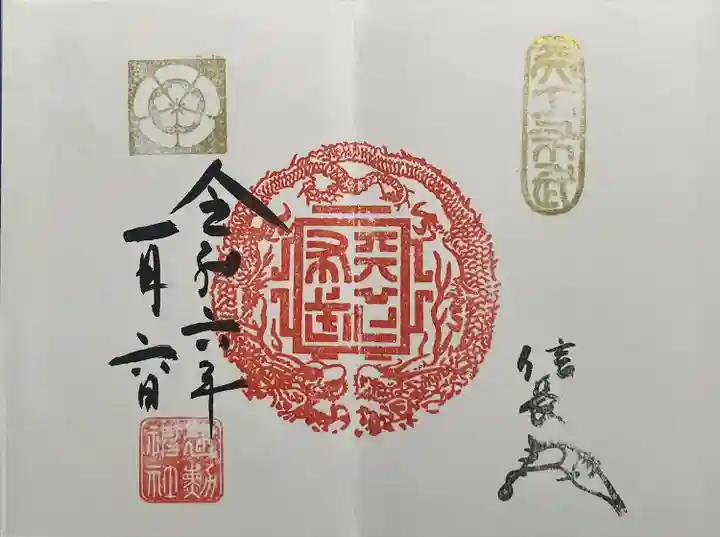 天下布武
天下
布武
信長
令和六年
一月六日
建勲
神社